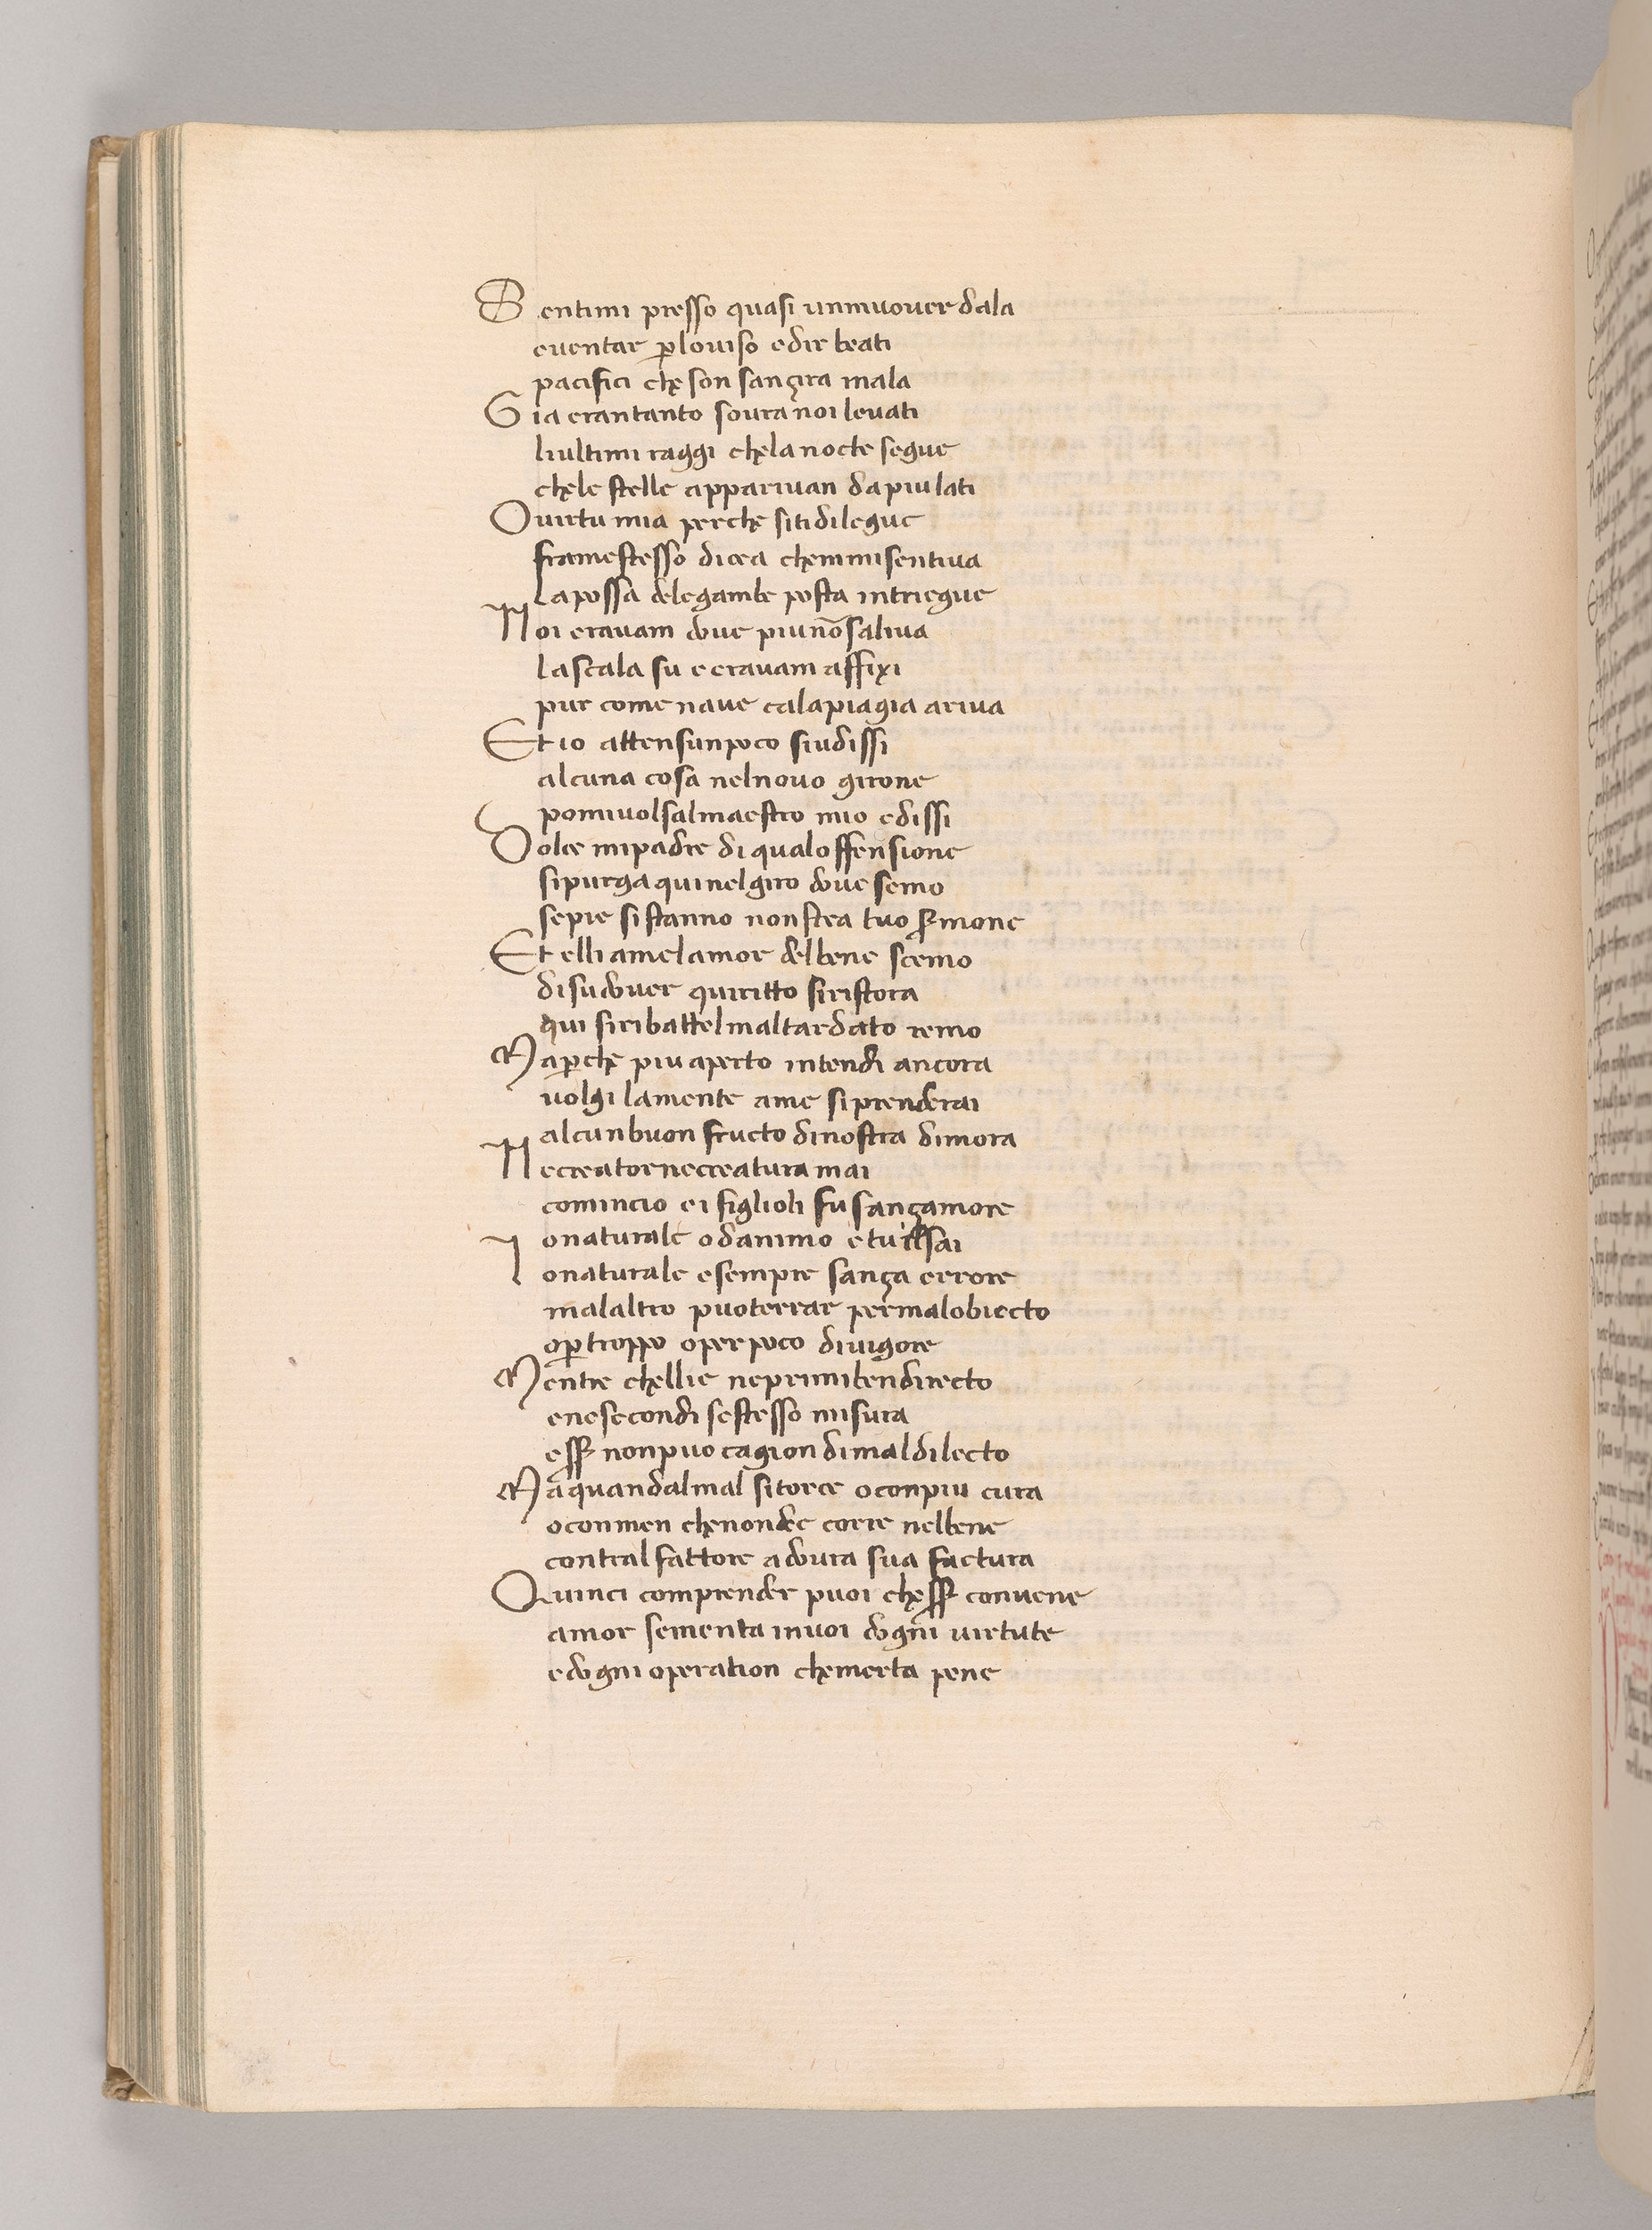 Sentimi presso quasi unmuover dala
eventar ꝑlouiso edir beati
pacifici che son sança mala
Gia erantanto soura noi leuati
liultimi raggi chela nocte segue
chele stelle appariuan dapiulati
Ouirtu mia perche sitidilegue
framestesso dicea chemmisentiua
La possa delegambe posta intriegue
Noi erauam doue piunō saliua
lascala su e erauam affixi
pur come naue calapiagia ariua
Et io attensunpoco siudissi
alcuna cosa nelnouo girone
pomiuolsalmaestro mio edissi
Dolce mipadre di qualoffensione
sipurga quinelgiro doue semo
sepie sistanno nonstea tuo ẜmone
Et elli amelamor delbene scemo
disudouer quiritto siristora
qui siribattelmaltardato remo
Maꝑche piuaperto intendi ancora
uolgi lamente ame siprenderai
alcunbuon fructo dinostra dimora
Necreatornecreatura mai
comincio ei figlioli fu sançamore
onaturale odanimo etu ilsai
Lonaturale esempre sança errore
malaltro puoterrar permalobiecto
oꝑtroppo operpoco diuigore
Mentre chellie neprimibendirecto
enesecondi sestesso misura
esẜ nonpuo cagion dimaldilecto
Maquandalmal sitorce oconpiu cura
oconmen chenondee corre nelbene
contral fattore adoura sua factura
Quinci comprender puoi chesẜ conuene
amor sementa inuoi dogni uirtute
edogni operation chemerta pene